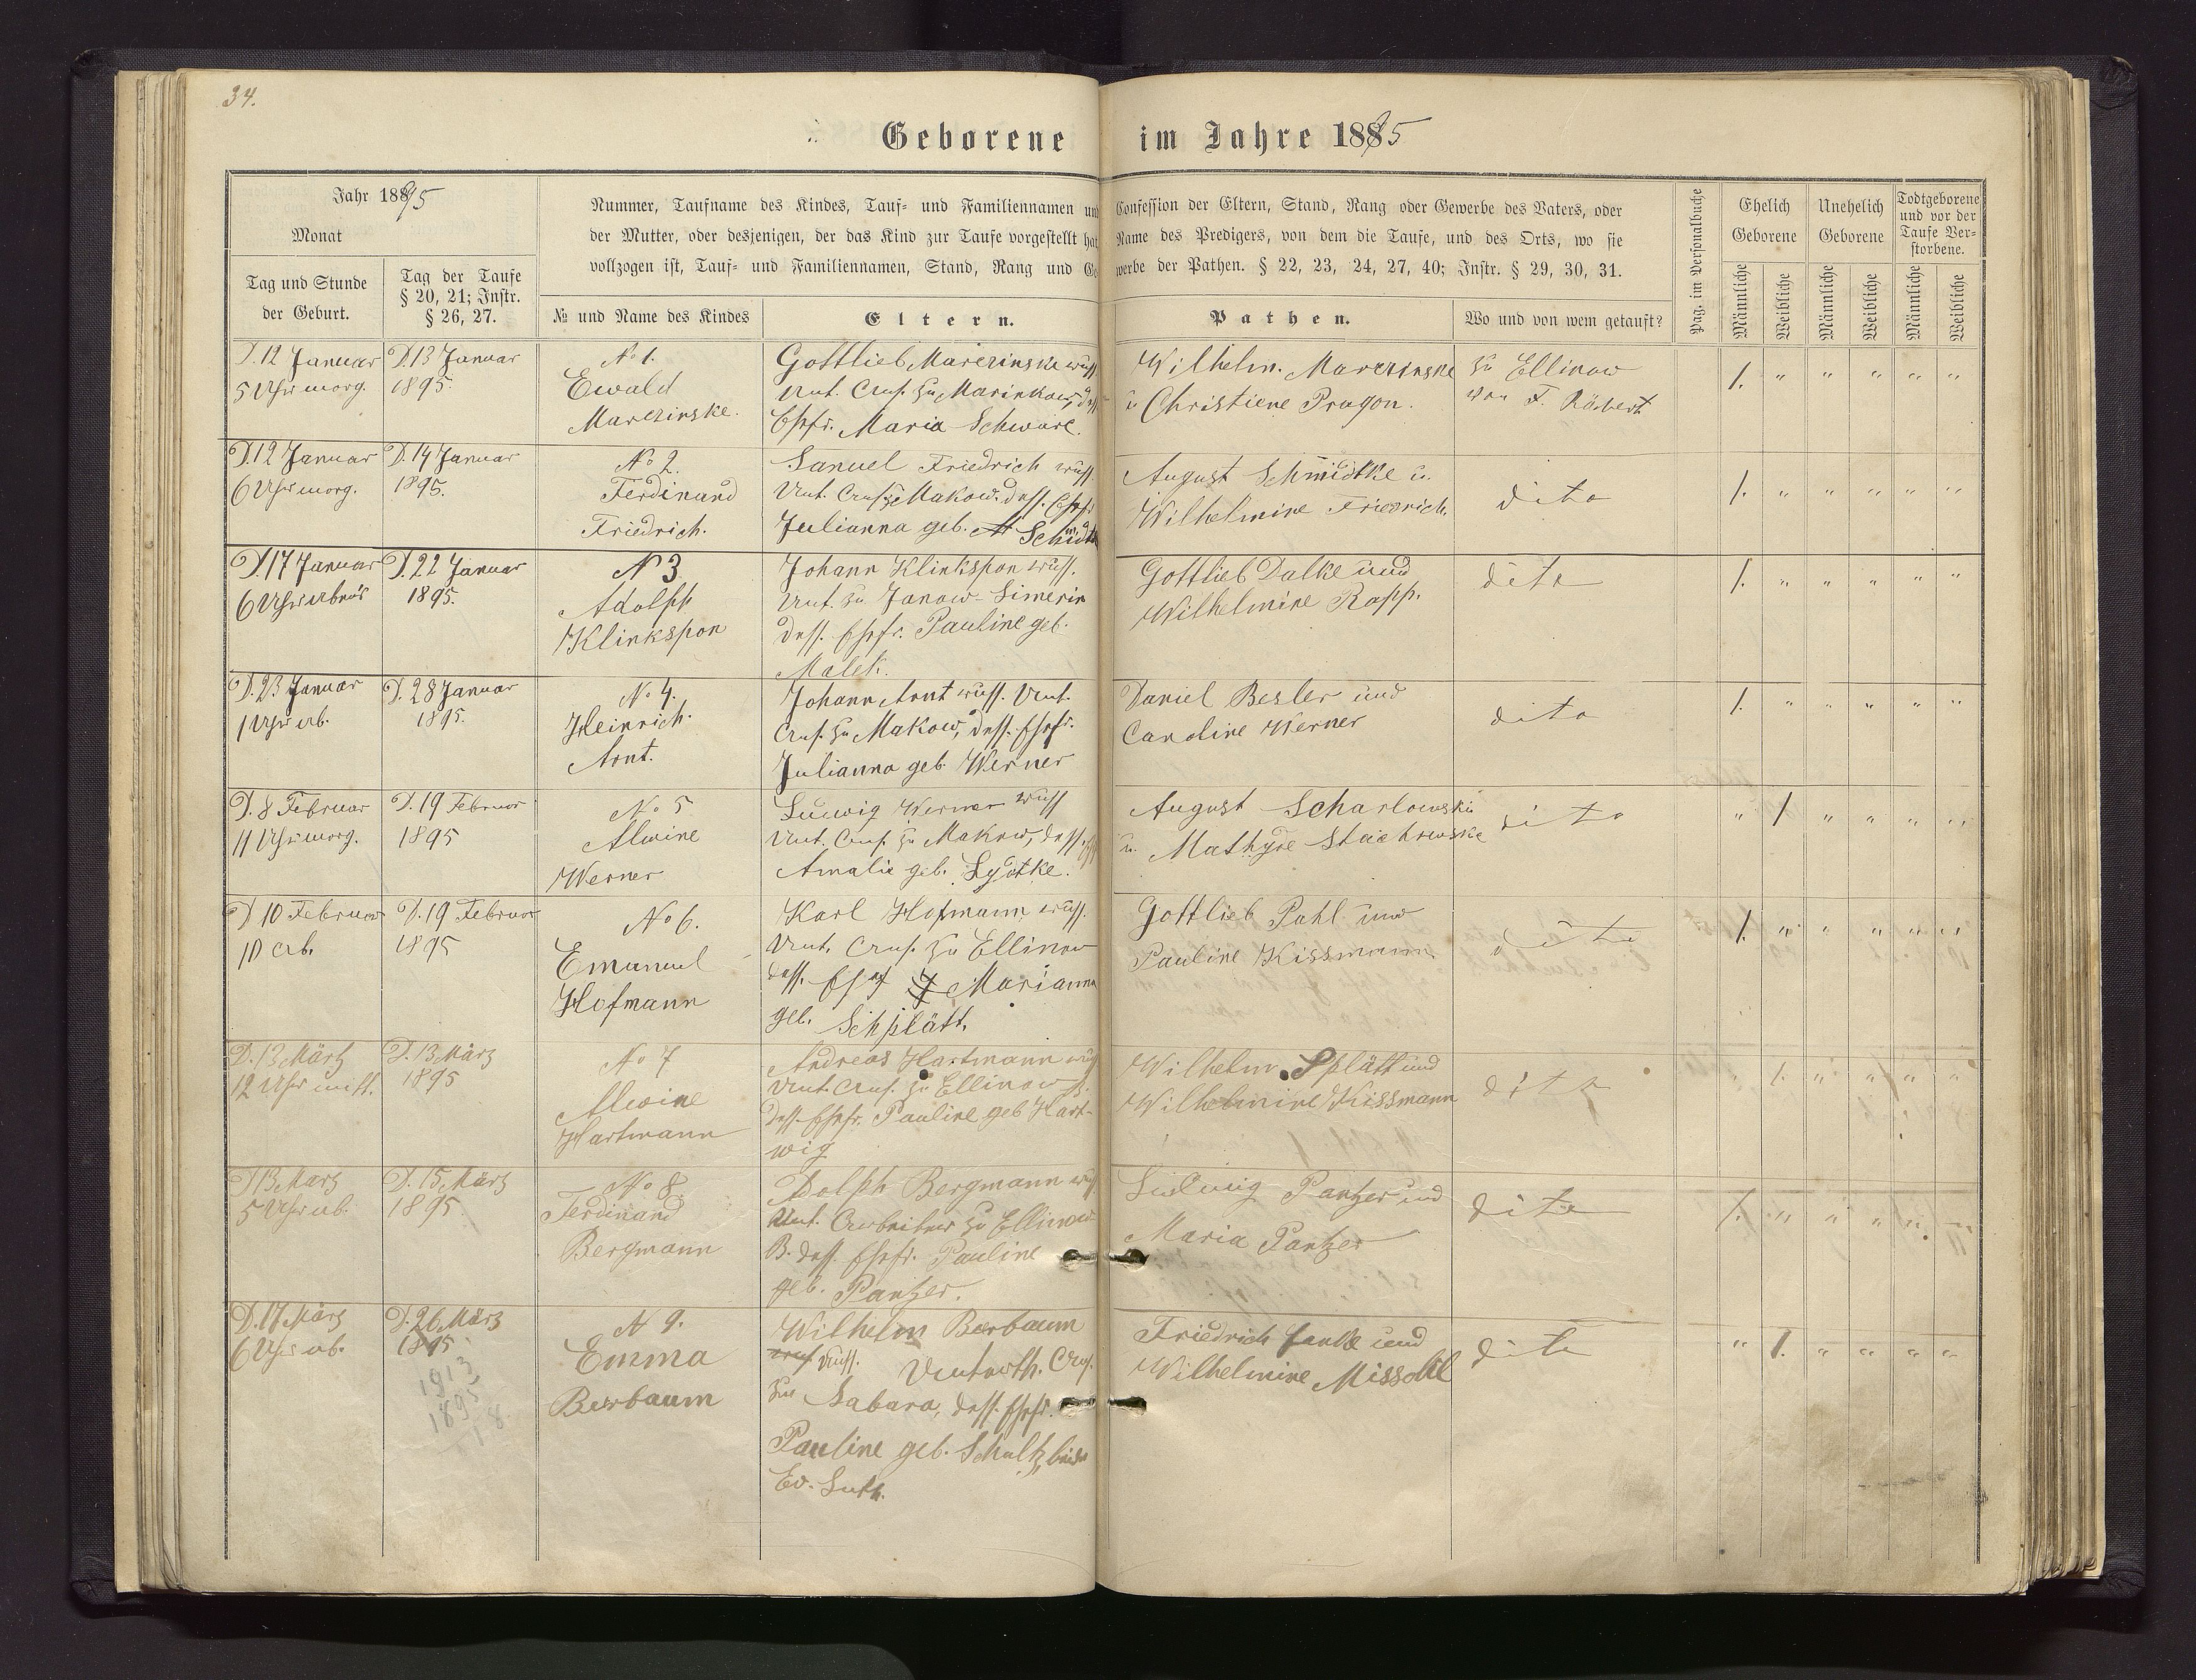 34.
Geborene im Jahre 1895
Jahr 1895
Monat
Tag und Stunde
der Geburt.
Tag der Taufe
§ 20, 21; Instr.
§ 26, 27.
Nummer, Taufname des Kindes, Tauf- und Familiennamen und Confession der Eltern, Stand, Rang oder Gewerbe des Vaters, oder
der Mutter, oder desjenigen, der das Kind zur Taufe vorgestellt hat Name des Predigers, von dem die Taufe, und des Orts, wo sie
vollzogen ist, Tauf- und Familiennamen, Stand, Rang und Gewerbe der Pathen. § 22, 23, 24, 27, 40; Instr. § 29, 30, 31.
№ und Name des Kindes
Eltern.
Pathen.
Wo und von wem getauft?
Pag. im Personalbuche
Ehelich
Geborene
Unehelich
Geborene
Todtgeborene
und vor der
Taufe Ver-
storbene.
Männliche
Weibliche
Männliche
Weibliche
Männliche
Weibliche
D. 12 Januar
5 Uhr morg.
D. 13 Januar
1895.
No 1.
Ewald
Marczinske.
Gottlieb Marczinske
zu Marinkow,
Ehefr. Maria Schware.
Wilhelm Marczinske
u Christiene Pragon.
zu Ellinow
von F. Räbert
1. " " " " "
D. 12 Januar
6 Uhr morg.
D. 14 Januar
1895.
No 2.
Ferdinand
Friedrich.
Samuel Friedrich
Makow. dess. Ehefr
Julianna geb. Schmidtke
August Schmidtke u.
Wilhelmine Friedrich.
dito
1. " " " " "
D. 17 Januar
6 Uhr abends
D. 22 Januar
1895.
N 3
Adolph
Klinkspon
Johann Klinkspon
zu Janow-Simerin
dess. Ehefr. Pauline geb.
Malek.
Gottlieb Dalke und
Wilhelmine Rapp.
dito
1. " " " " "
D. 23 Januar
1 Uhr ab.
D. 28 Januar
1895.
No 4.
Heinrich
Arnt.
Johann Arnt
zu Makow, dess. Ehefr.
Julianna geb. Werner
Daniel Besler und
Caroline Werner
dito
1. " " " " "
D. 8 Februar
11 Uhr morg.
D. 19 Februar
1895
No 5
Alwine
Werner
Ludwig Werner
zu Makow, dess.
Amalie geb. Lydtke.
August Scharlowski
u. Mathyde Stachowske
dito
" 1 " " " "
D 10 Februar
10 ab.
D. 19 Februar
1895
No 6.
Emanuel
Hofmann
Karl Hofmann
zu Ellinow
dess. Marianna
geb. Schplätt.
Gottlieb Pahl und
Pauline Kissmann
dito
1. " " " " "
D. 13 März
12 Uhr mitt.
D. 13 März
1895
No 7
Alwine
Hartmann
Andreas Hartmann
zu Ellinow
dess. Ehefr. Pauline geb Hart-
wig
Wilhelm Splätt und
Wilhelmine Kissmann
dito
" 1. " " " "
D 13 März
5 Uhr ab.
D. 15 März
1895.
No 8.
Ferdinand
Bergmann
Adolph Bergmann
Arbeiter zu Ellinow
B. dess. Ehefr. Pauline
geb. Pantzer.
Ludwig Pantzer und
Maria Pantzer
dito
1. " " " " "
D. 17 März
6 Uhr ab.
D. 26 März
1895.
1913
1895
18
N 9.
Emma
Berbaum
Wilhelm Berbaum
zu Sabara, dess. Ehefr.
Pauline geb. Schultz, beide
Ev. Luth.
Friedrich Janke und
Wilhelmine Missohl
dito
" 1. " " " "